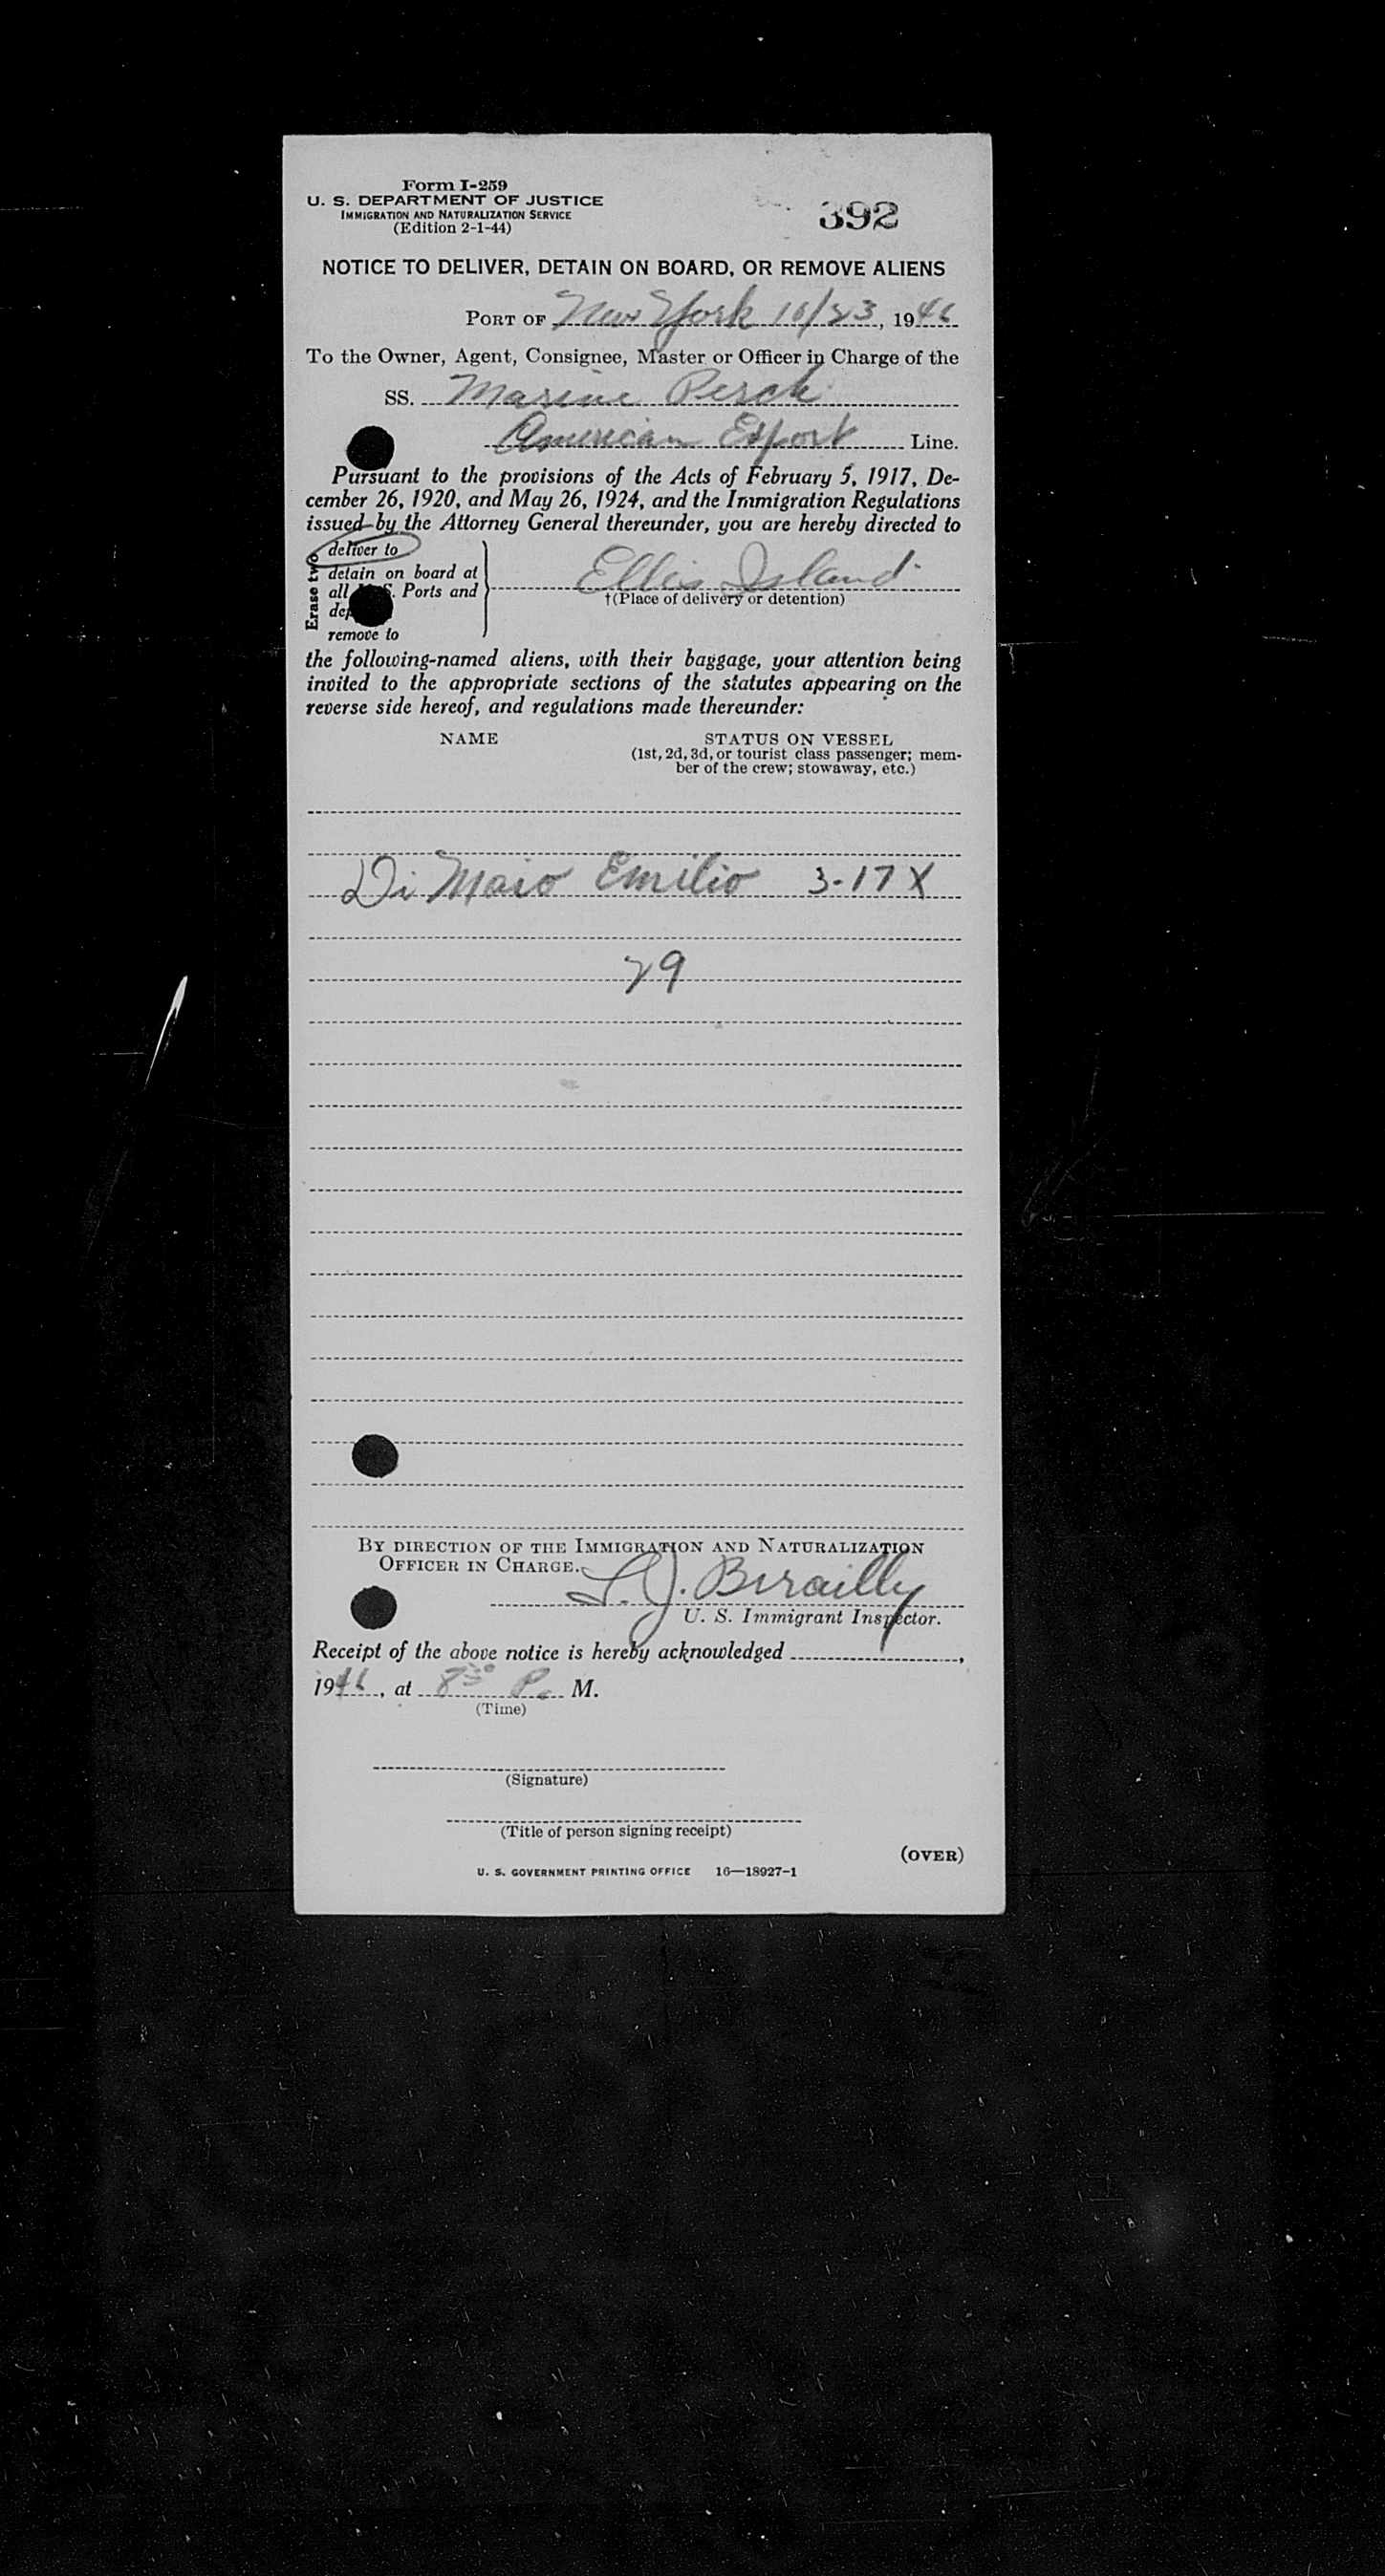 Form I-259
U. S. DEPARTMENT OF JUSTICE
IMMIGRATION AND NATURALIZATION SERVICE
(Edition 2-1-44)
392
NOTICE TO DELIVER, DETAIN ON BOARD, OR REMOVE ALIENS
PORT OF New York 10/23, 1946
To the Owner, Agent, Consignee, Master or Officer in Charge of the
SS. Marine Perch
American Export Line.
Pursuant to the provisions of the Acts of February 5, 1917, De-
cember 26, 1920, and May 26, 1924, and the Immigration Regulations
issued by the Attorney General thereunder, you are hereby directed to
Erase two
deliver to
detain on board at
all U. S. Ports and
remove to
Ellis Island
†(Place of delivery or detention)
the following-named aliens, with their baggage, your attention being
invited to the appropriate sections of the statutes appearing on the
reverse side hereof, and regulations made thereunder:
NAME STATUS ON VESSEL
(1st, 2d, 3d, or tourist class passenger; mem-
ber of the crew; stowaway, etc.)
Di Maio Emilio 3-17 X
29
BY DIRECTION OF THE IMMIGRATION AND NATURALIZATION
OFFICER IN CHARGE.
U. S. Immigrant Inspector.
Receipt of the above notice is hereby acknowledged ,
1946, at 8 30 P. M.
(Time)
(Signature)
(Title of person signing receipt)
(OVER)
U. S. GOVERNMENT PRINTING OFFICE 16—18927-1